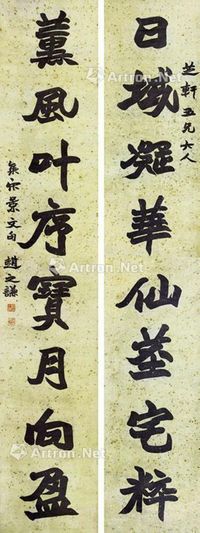 芝軒五兄大人
日域凝華仙莖宅粹
薰風叶序寶月向盈
集宋景文句 趙之謙
Artron.Net
Artron.Net